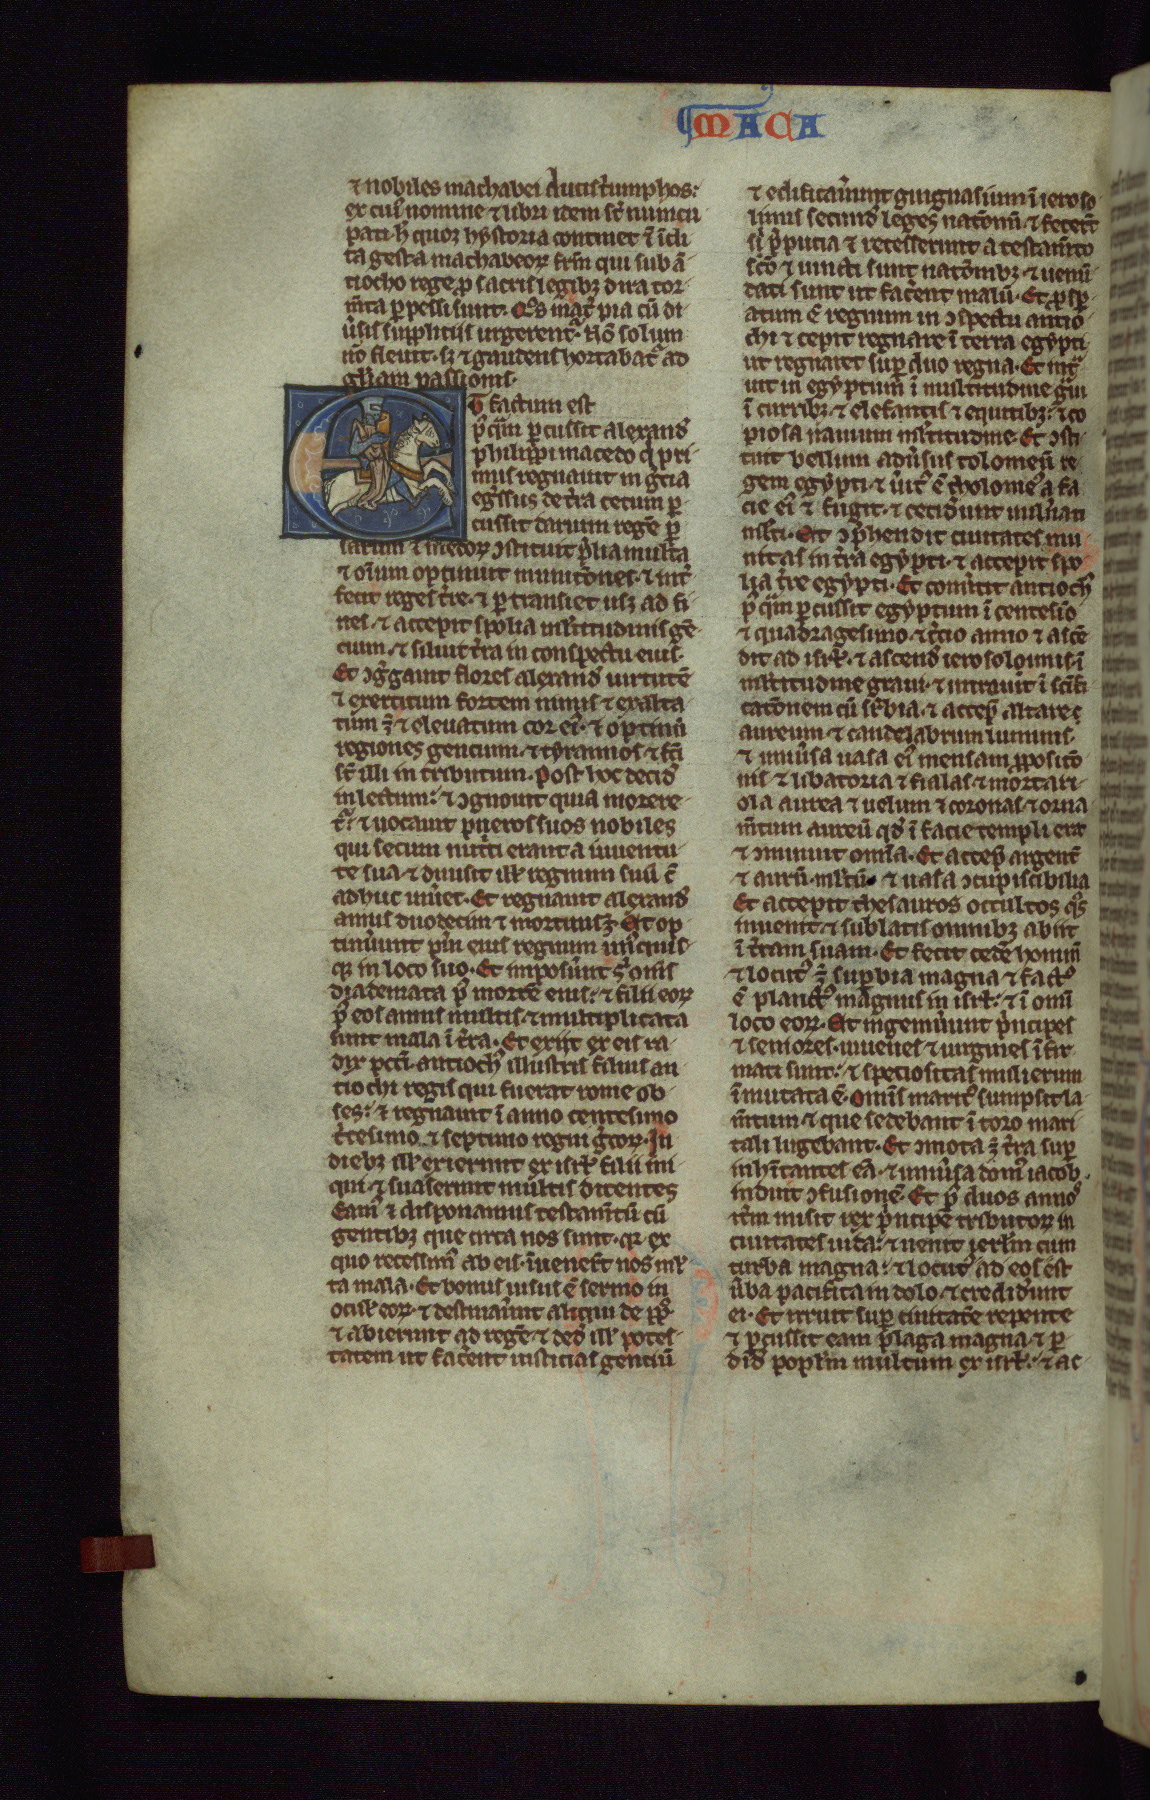 MACA
⁊ nobiles machabei ducis t̾umphos:
ex cuı᷒ nomine ⁊ libri idem st̄ nuncu
pati. h̄ quoꝝ hystoria continet ⁊ īcli
ta gesta machabeoꝝ frm̄ qui sub ā
tiocho rege ꝓ sacris legibꝫ dira tor
m̄ta ꝑpessi sunt. Q̄s mat̾ pia cū di
ūsis suppliciis urgerent᷑. Nō solum
nō fleuit. sꝫ ⁊ gaudens hortabat᷑ ad
gl̄iam passionis.
ET factum est
p᷒ qm̄ ꝑcussit alexand̾
philippi macedo q̇ pri
mus regnauit in g̾cia
eg̾ssus de t̾ra cetum ꝑ
cussit darium regē ꝑ
sarum ⁊ medoꝝ ↄstituit p̾lia multa
⁊ om̄ium optinuit munitōnes. ⁊ int̾
fecit reges t̾re. ⁊ ꝑtransiet usꝫ ad fi
nes. ⁊ accepit spolia ml̾titudinis gē
cium. ⁊ siluit t̾ra in conspectu eius.
Et ↄg̾gauit flores alexand̾ uirtutē
⁊ exercitum fortem nimis ⁊ exalta
tum ÷ ⁊ eleuatum cor eı᷒. ⁊ optinū
regiones gencium. ⁊ tyrannos. ⁊ fc̄i
st̄ illi in tributum. Post hoc decid̾
in lectum: ⁊ ↄgnouit quia morere
t᷑: ⁊ uocauit pueros suos nobiles
qui secum nut̾ti erant a iuuentu
te sua. ⁊ diuisit ill᷒ regnum suū c̄
adhuc iūiet. Et regnauit alexand̾
annis duodecim ⁊ mortuus ÷. Et op
tinūunt pu̾i eius regnum unꝰ quis
qꝫ in loco suo. Et imposūnt s᷒ om̄s
diademata p᷒ mortē eius: ⁊ filii eoꝝ
p᷒ eos annis multis. ⁊ multiplicata
sunt mala ī t̾ra. Et exiit ex eis ra
dix pcc̄i. antiochꝰ illustris filius an
tiochi regis qui fuerat rome ob
ses: ⁊ regnauit ī anno centesimo
t̾cesimo ⁊ septimo regni g̾coꝝ. In
diebꝫ ill᷒ exierunt ex isrl̾ filii ini
qui. ⁊ suaserunt multis dicentes
Eamꝰ ⁊ disponamus testam̄tū cū
gentibꝫ que circa nos sunt. qꝛ ex
quo recessimꝰ ab eis. īuenert̄ nos ml̾
ta mala. Et bonus uisus ē sermo in
oculis eoꝝ. ⁊ destinaūnt aliqui de pp̄l̾o
⁊ abierunt ad regē. ⁊ ded̾ ill᷒ potes
tatem ut fac̾ent iusticias gentiū
⁊ edificauer̄unt guignasium ī ieroso
limis secund̾ leges natōnū. ⁊ fecert̄
s᷒ p̾pucia ⁊ recesserunt a testam̄to
sc̄o ⁊ uincti sunt natōnibꝫ. ⁊ uenū
dati sunt ut fac̾ent malū. Et ꝓsꝑ
atum ē regnum in ↄspectu antio
chi ⁊ cepit regnare ī terra egypti
ut regnaret suꝑ duo regna. Et int̾
uit in egyptum ī multitudine g̾ui
ī curribꝫ. ⁊ elefantis ⁊ equitibꝫ: ⁊ co
piosa nauium ml̾titudine. Et ↄsti
tuit bellum adūsus tolomeū re
gem egypti. ⁊ ūitꝰ ē tholomeꝰ a fa
cie eı᷒ ⁊ fugit. ⁊ cecid̾unt uuln̾ati
ml̾ti. Et ↄp̾hendit ciuitates mu
nitas in t̾ra egypti. ⁊ accepit spo
lia t̾re egypti. Et conūtit antiochꝰ
p᷒ qm̄ ꝑcussit egyptum ī centesiōo
⁊ quadragesimo ⁊ t̾cio anno ⁊ ascē
dit ad isrl̾. ⁊ ascend̾ ierosolimis. ī
ml̾titudine graui. ⁊ intrauit ī sc̄ifi
catōnem cū suꝑbia. ⁊ accep̾ altare
aureum. ⁊ candelabrum luminis.
⁊ uniūsa uasa eı᷒ mensam ꝓpositō
nis. ⁊ libatoria ⁊ fialas ⁊ mortari
ola aurea ⁊ uelum ⁊ coronas ⁊ orna
m̄tum aureū qd̾ ī facie templi erat
⁊ ↄminuit omīa. Et accep̾ argent̄
⁊ aurū. ml̾tū. ⁊ uasa ↄcupiscibilia
Et accepit thesauros occultos q̄s
inuenit. ⁊ sublatis omnibꝫ abiit
ī t̾ram suam. Et fecit cedē hominū
⁊ locutꝰ ÷ suꝑbia magna ⁊ factꝰ
ē planctꝰ magnus in isrl̾: ⁊ ī omī
loco eoꝝ. Et ingemūunt p̾ncipes
⁊ seniores. iuuenes ⁊ uirgines ī fir
mati sunt: ⁊ speciositas mulierum
īmutata ē. Omīs maritꝰ sumpsit la
m̄tum ⁊ que sedebant ī toro mari
tali lugebant. Et ↄmota ÷ t̾ra suꝑ
inhītantes eā. ⁊ uniūsa domꝰ iacob
induit ↄfusionē. Et p᷒ duos annos
it̾m misit rex p̾ncipē tributoꝝ in
ciuitates iuda: ⁊ uenit ierl̾m cum
turba magna: ⁊ locutꝰ ad eos ēst
ūba pacifica in dolo. ⁊ credid̾unt
ei. Et irruit suꝑ ciuitatē repente
⁊ ꝑcussit eam plaga magna. ⁊ ꝑ
did̾ popl̾m multum ex isrl̾: ⁊ ac